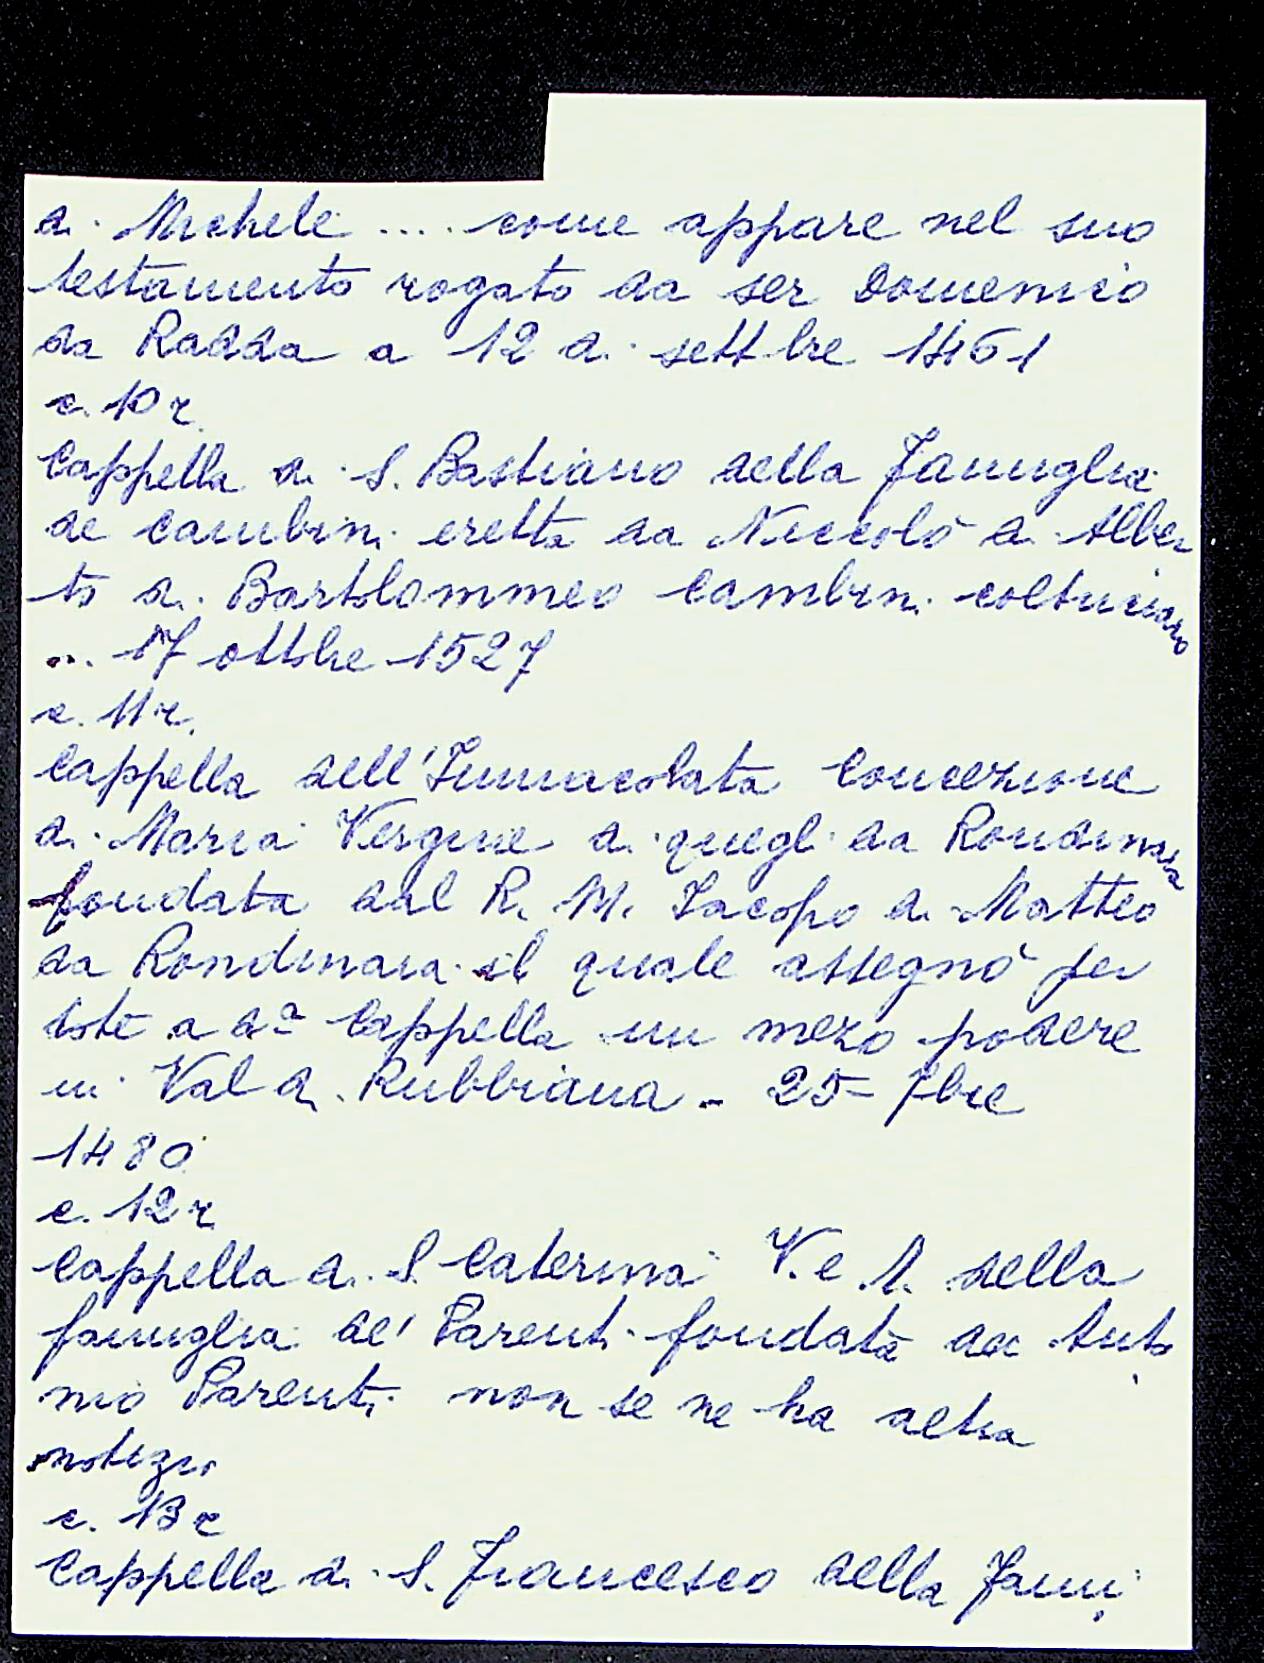 di Michele .... come appare nel suo
testamento rogato da ser Domenico
da Radda a 12 di settbre 1461
c. 10 r.
Cappella di S. Bastiano della Famiglia
de Cambini eretta da Niccolò di Alber
to di Bartolommeo Cambini coltriciaro
... 17 ottobre 1527
c. 11 r.
Cappella dell'Immacolata Concezione
di Maria Vergine di quegli da Rondinaia
fondata dal R. M. Iacopo di Matteo
da Rondinaia il quale assegnò per
dote a da Cappella un mezo podere
in Val di Rubbiana - 25 7bre
1480
c. 12 r
Cappella di S. Caterina V. e M. della
famiglia de' Parenti fondata da Anto
nio Parenti non se ne ha altra
notizia
c. 13 r
Cappella di S. Francesco della Fami